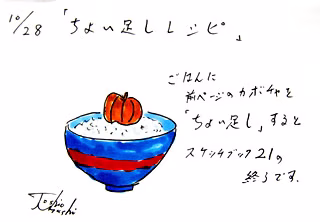 10/28 「ちょい足しレシピ」
ごはんに
前ページのカボチャを
「ちょい足し」すると
スケッチブック21の
終了です.
Toshio